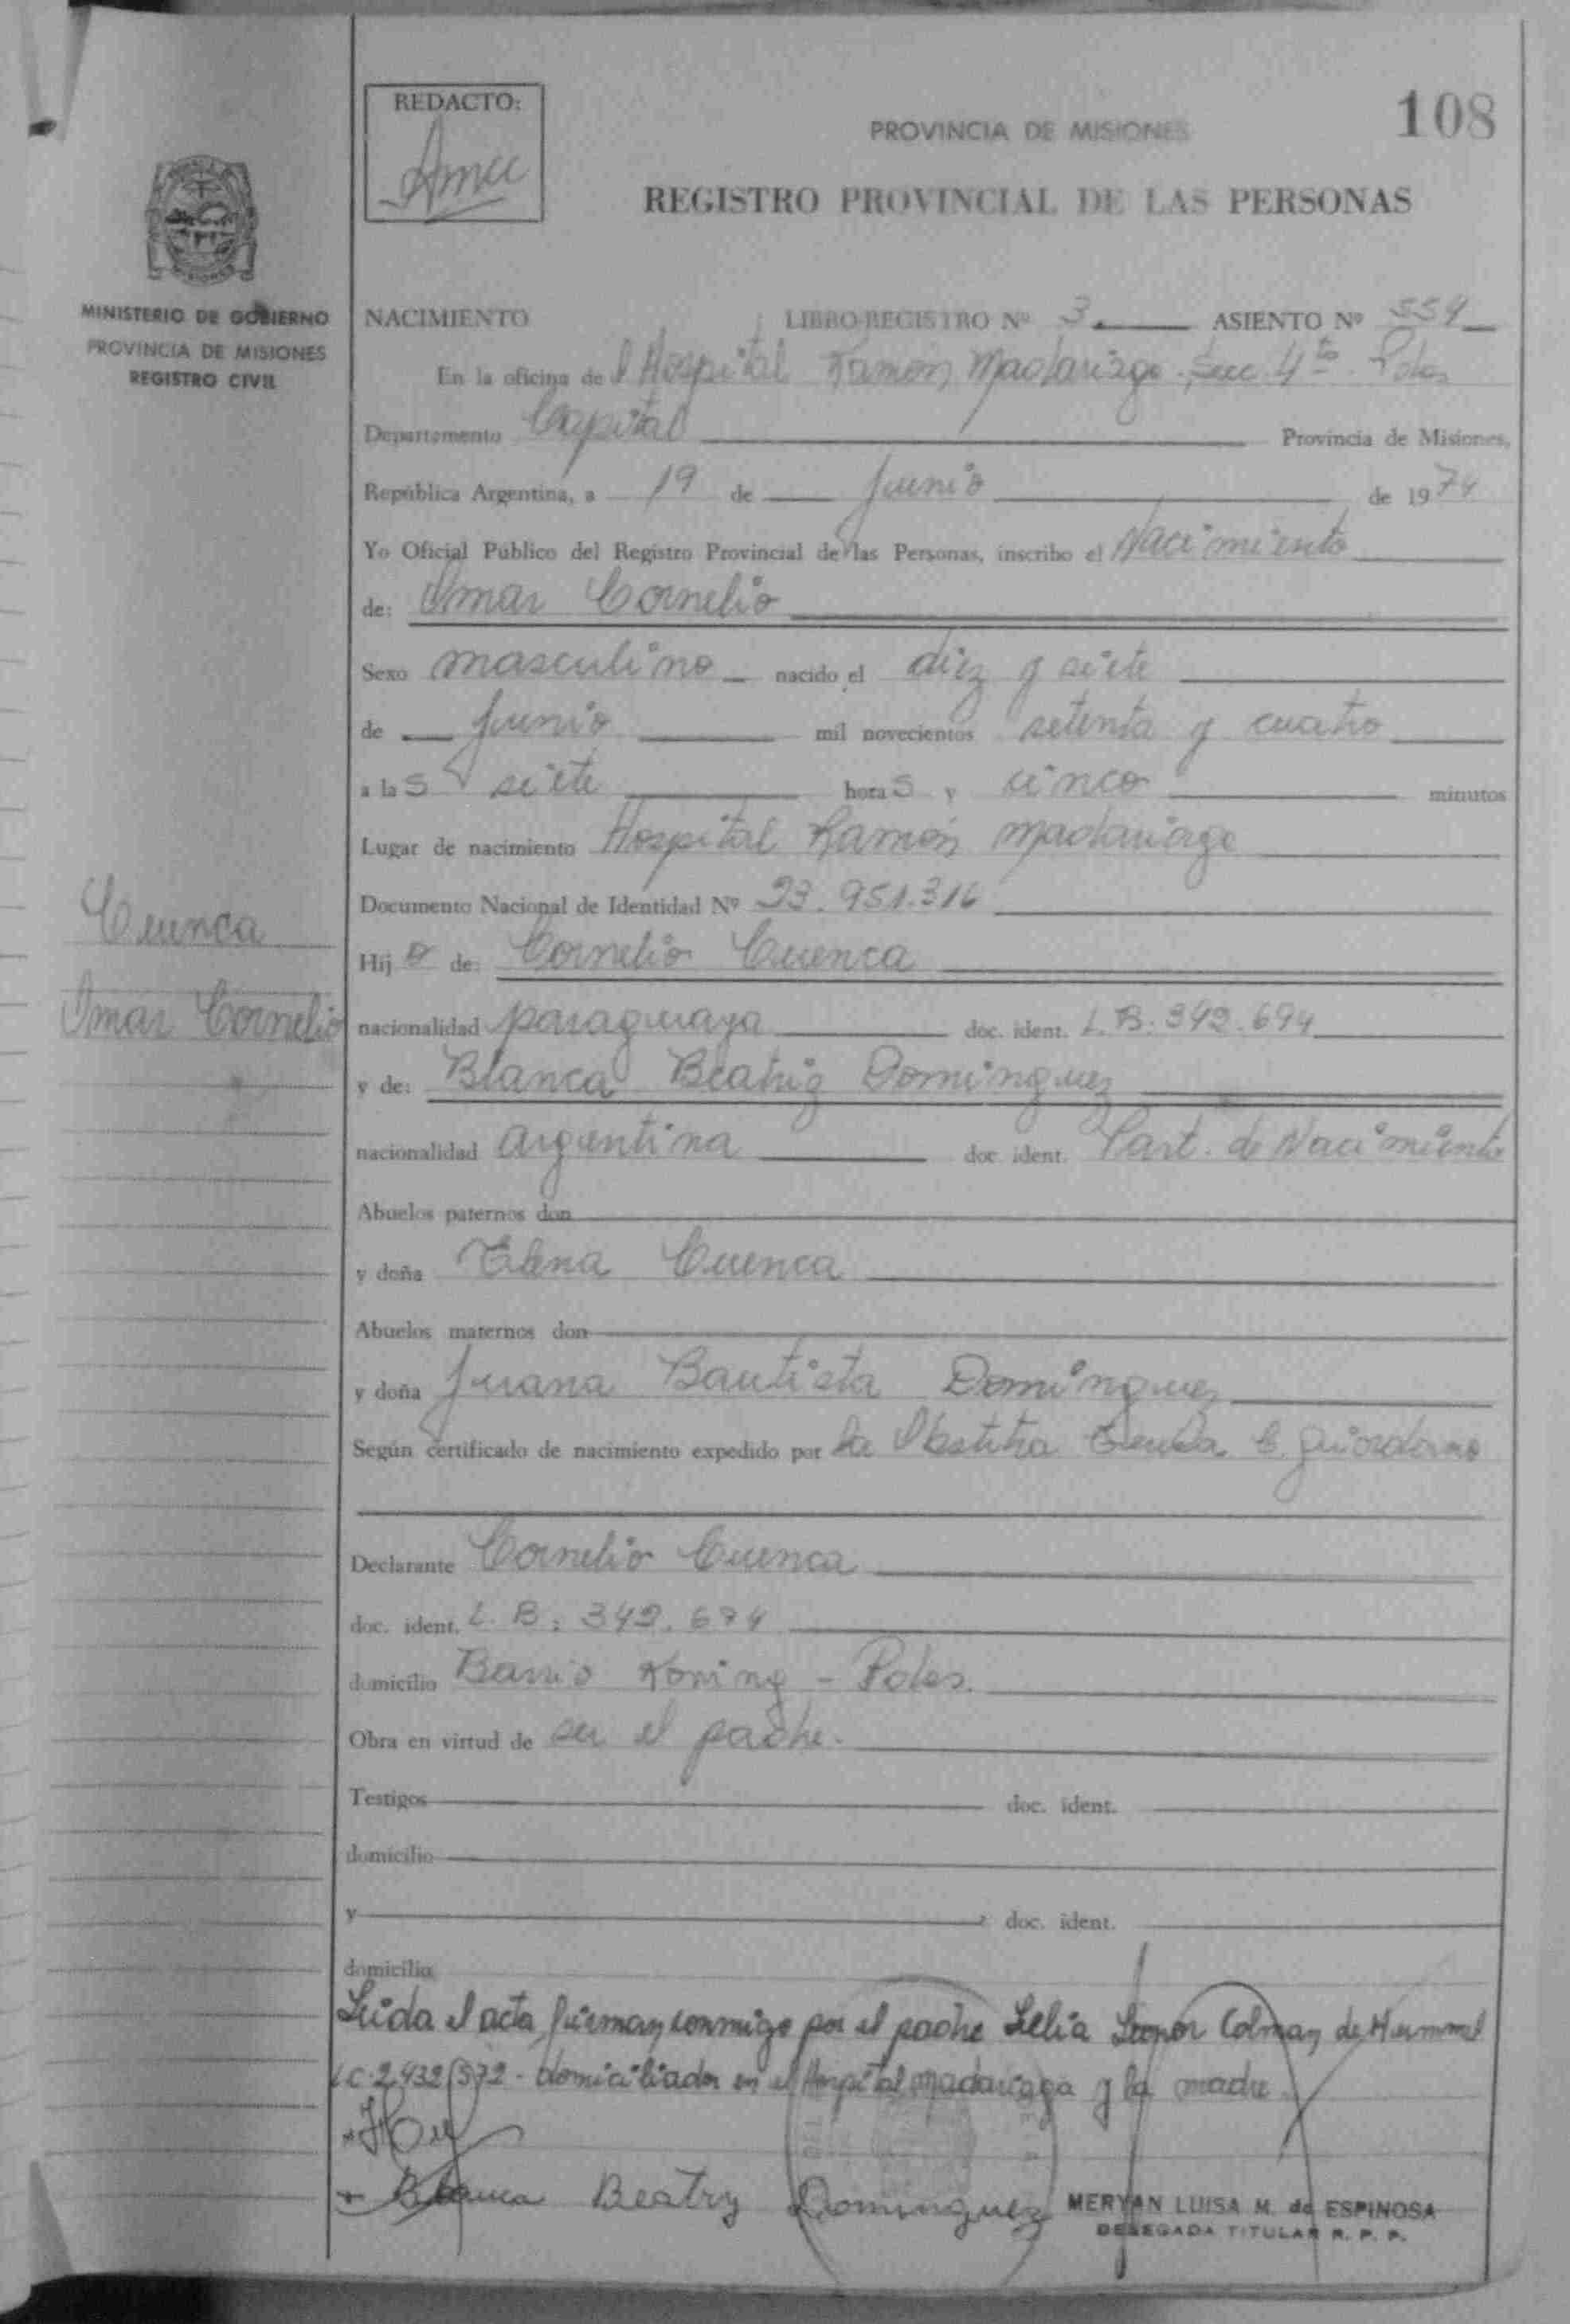 REDACTO:
108
PROVINCIA DE MISIONES
REGISTRO PROVINCIAL DE LAS PERSONAS
MINISTERIO DE GOBIERNO
PROVINCIA DE MISIONES
REGISTRO CIVIL
NACIMIENTO LIBRO-REGISTRO Nº 3 ASIENTO Nº 554
En la oficina del Hospital Ramón Madariaga. Sec. 4ta Pdas
Departamento Capital Provincia de Misiones,
República Argentina, a 19 de Junio de 1974
Yo Oficial Público del Registro Provincial de las Personas, inscribo el Nacimiento
de: Omar Cornelio
Sexo masculino nacido el diez y siete
de Junio mil novecientos setenta y cuatro
a las siete horas y cinco minutos
Lugar de nacimiento Hospital Ramón Madariaga
Documento Nacional de Identidad Nº 23.951.316
Cuenca
Omar Cornelio
Hijo de: Cornelio Cuenca
nacionalidad paraguaya doc. ident. L.B: 342.694
y de: Blanca Beatriz Dominguez
nacionalidad argentina doc. ident. Part. de Nacimiento
Abuelos paternos don
y doña Elena Cuenca
Abuelos maternos don
y doña Juana Bautista Dominguez
Según certificado de nacimiento expedido por la Obstetra C. Giordano
Declarante Cornelio Cuenca
doc. ident. L.B: 342.694
domicilio Barrio Koning - Pdas.
Obra en virtud de ser el padre.
Testigos doc. ident.
domicilio
y doc. ident.
domicilio
Leida el acta firman conmigo por el padre Lelia Leonor Colman de Hummel
LC.2.432.572 - domiciliados en el Hospital Madariaga y la madre.
Blanca Beatriz Dominguez
MERYAN LUISA M. de ESPINOSA
DELEGADA TITULAR R. P. P.